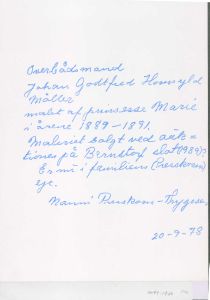 Overbådsmand
Johan Godtfred Hornsyld
Møller
malet af prinsesse Marie
i årene 1889-1891.
Maleriet solgt ved auk=
tionen på Bernstorf slot (1989)?
Er nu i familien
eje.
Nanni
20-9-78